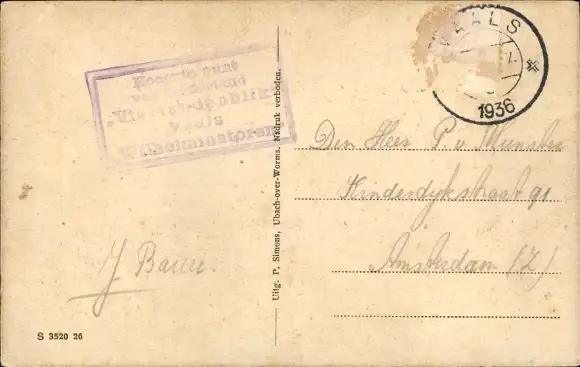 Hoogste punt
van Nederland
„Vierlandenblik"
Vaals
Wilhelminatoren
VAALS
1936
Den Heer P v. Munster
Kinderdijkstraat 91
Amsterdam (Z)
J Bauer
Uitg. P. Simons, Ubach-over-Worms, Nadruk verboden.
S 3520 26